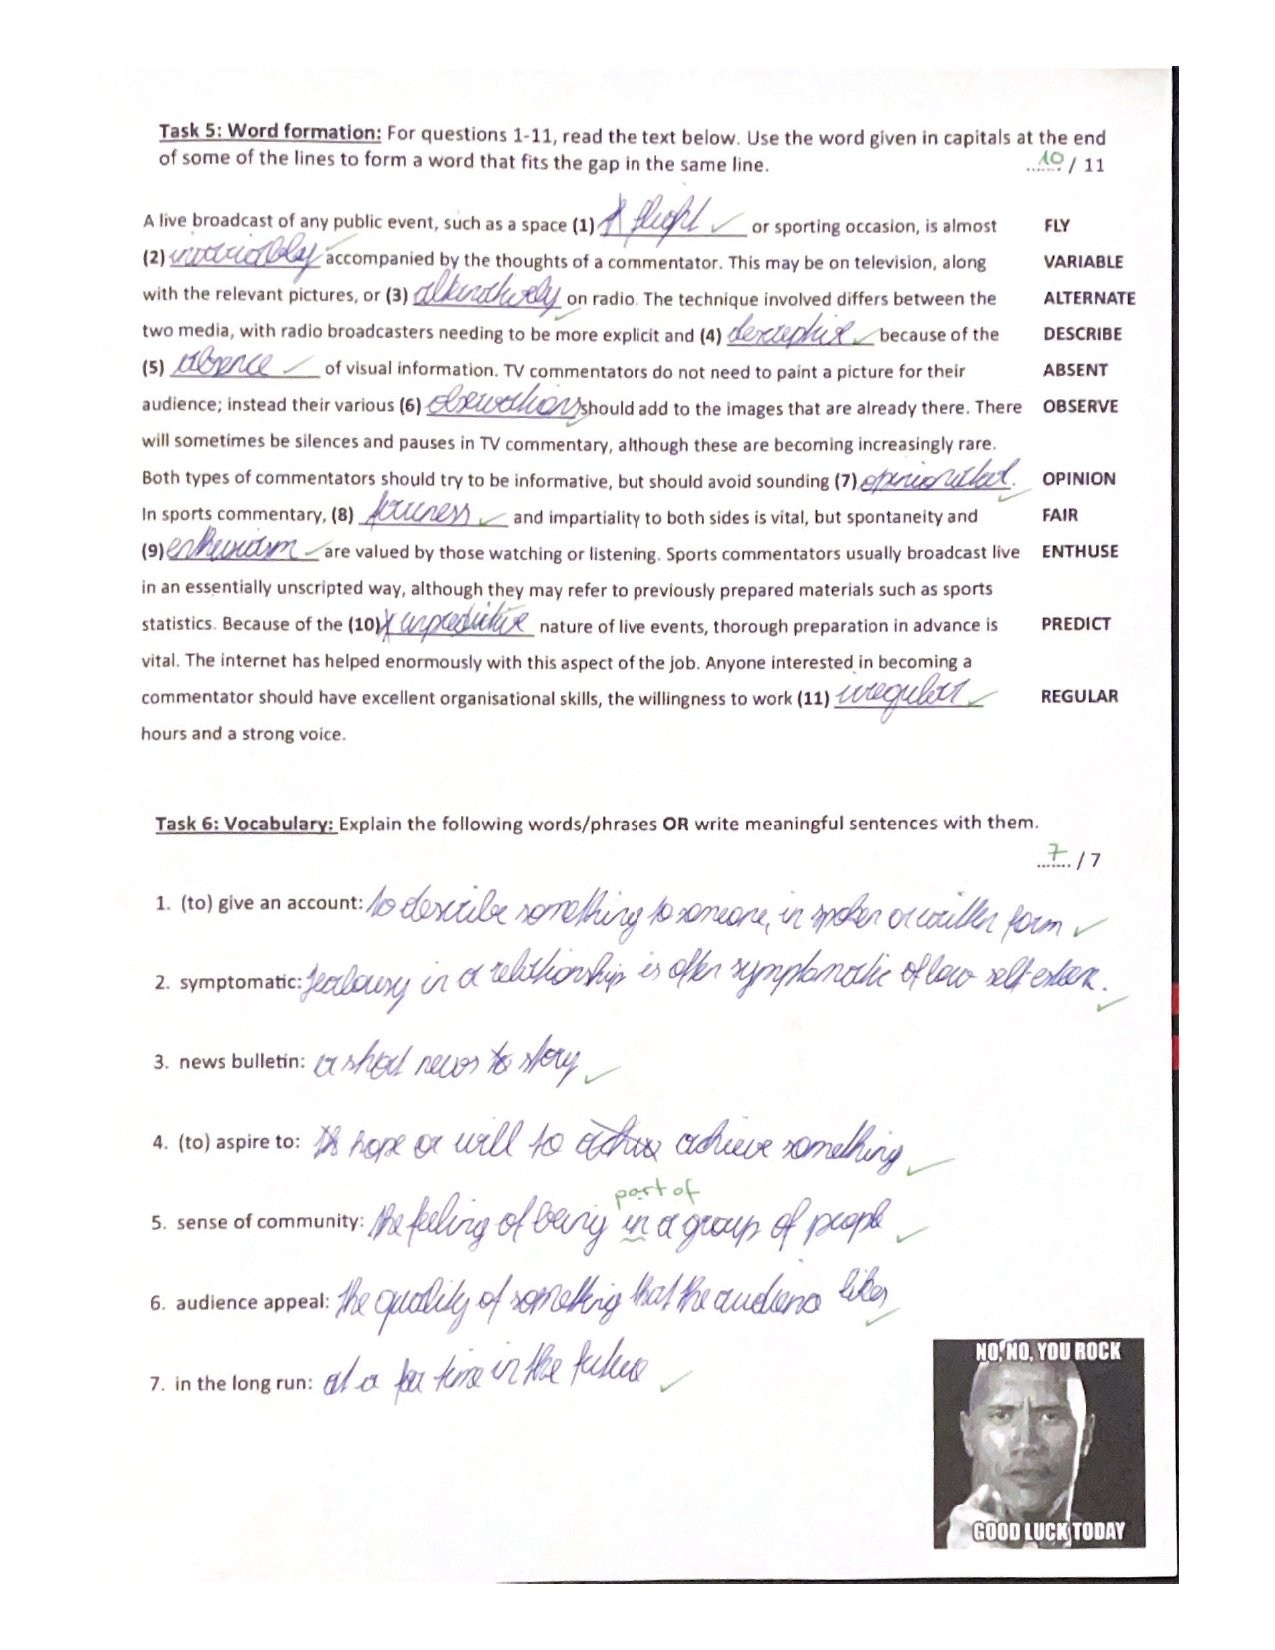 Task 5: Word formation: For questions 1-11, read the text below. Use the word given in capitals at the end
of some of the lines to form a word that fits the gap in the same line. 10 / 11
A live broadcast of any public event, such as a space (1) flight or sporting occasion, is almost FLY
(2) invariably accompanied by the thoughts of a commentator. This may be on television, along VARIABLE
with the relevant pictures, or (3) alternatively on radio. The technique involved differs between the ALTERNATE
two media, with radio broadcasters needing to be more explicit and (4) descriptive because of the DESCRIBE
(5) absence of visual information. TV commentators do not need to paint a picture for their ABSENT
audience; instead their various (6) observations should add to the images that are already there. There OBSERVE
will sometimes be silences and pauses in TV commentary, although these are becoming increasingly rare.
Both types of commentators should try to be informative, but should avoid sounding (7) opinionated. OPINION
In sports commentary, (8) fairness and impartiality to both sides is vital, but spontaneity and FAIR
(9) enthusiasm are valued by those watching or listening. Sports commentators usually broadcast live ENTHUSE
in an essentially unscripted way, although they may refer to previously prepared materials such as sports
statistics. Because of the (10) unpredictive nature of live events, thorough preparation in advance is PREDICT
vital. The internet has helped enormously with this aspect of the job. Anyone interested in becoming a
commentator should have excellent organisational skills, the willingness to work (11) irregular REGULAR
hours and a strong voice.
Task 6: Vocabulary: Explain the following words/phrases OR write meaningful sentences with them.
7 / 7
1. (to) give an account: to describe something to someone, in spoken or written form
2. symptomatic: Jealousy in a relationship is often symptomatic of low self-esteem.
3. news bulletin: a short news story
4. (to) aspire to: hope or will to achieve something
part of
5. sense of community: the feeling of being in a group of people
6. audience appeal: the quality of something that the audience likes
7. in the long run: at a far time in the future
NO, NO, YOU ROCK
GOOD LUCK TODAY